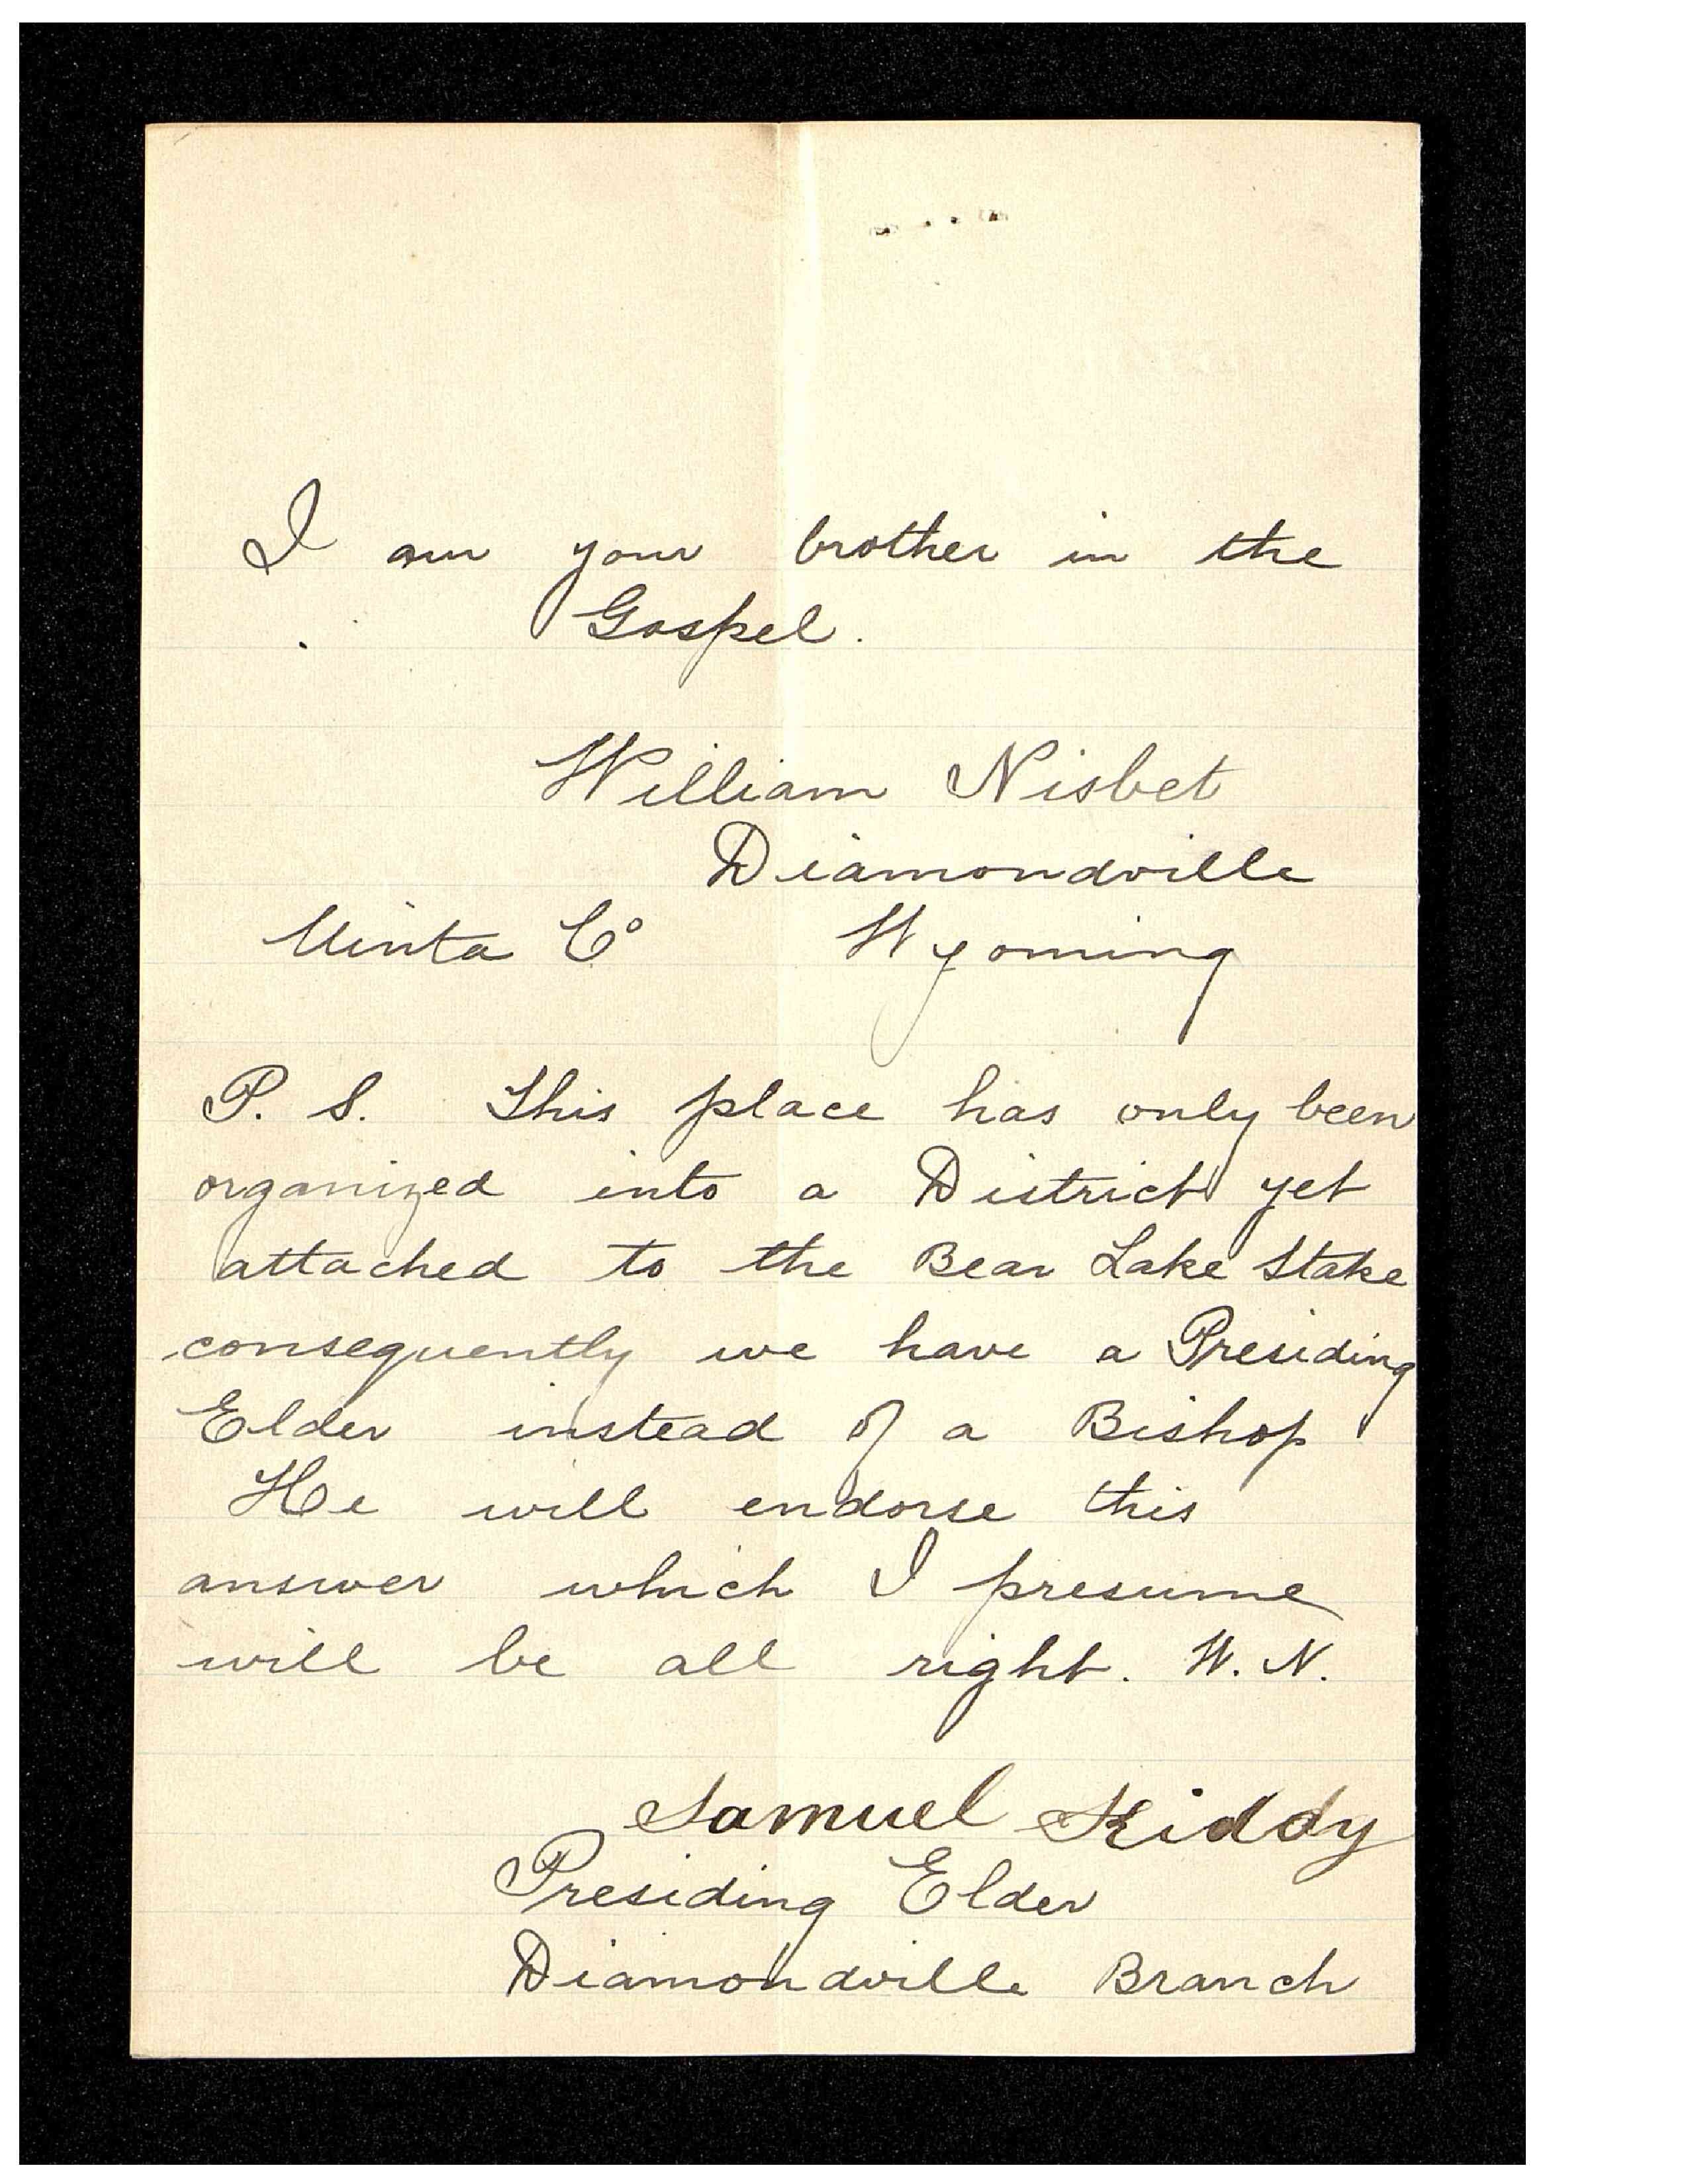 I am your brother in the
Gospel.
William Nisbet
Diamondville
Uinta Co Wyoming
P. S. This place has only been
organized into a District yet
attached to the Bear Lake Stake
consequently we have a Presiding
Elder instead of a Bishop
He will endorse this
answer which I presume
will be all right. W. N.
Samuel Kiddy
Presiding Elder
Diamondville Branch